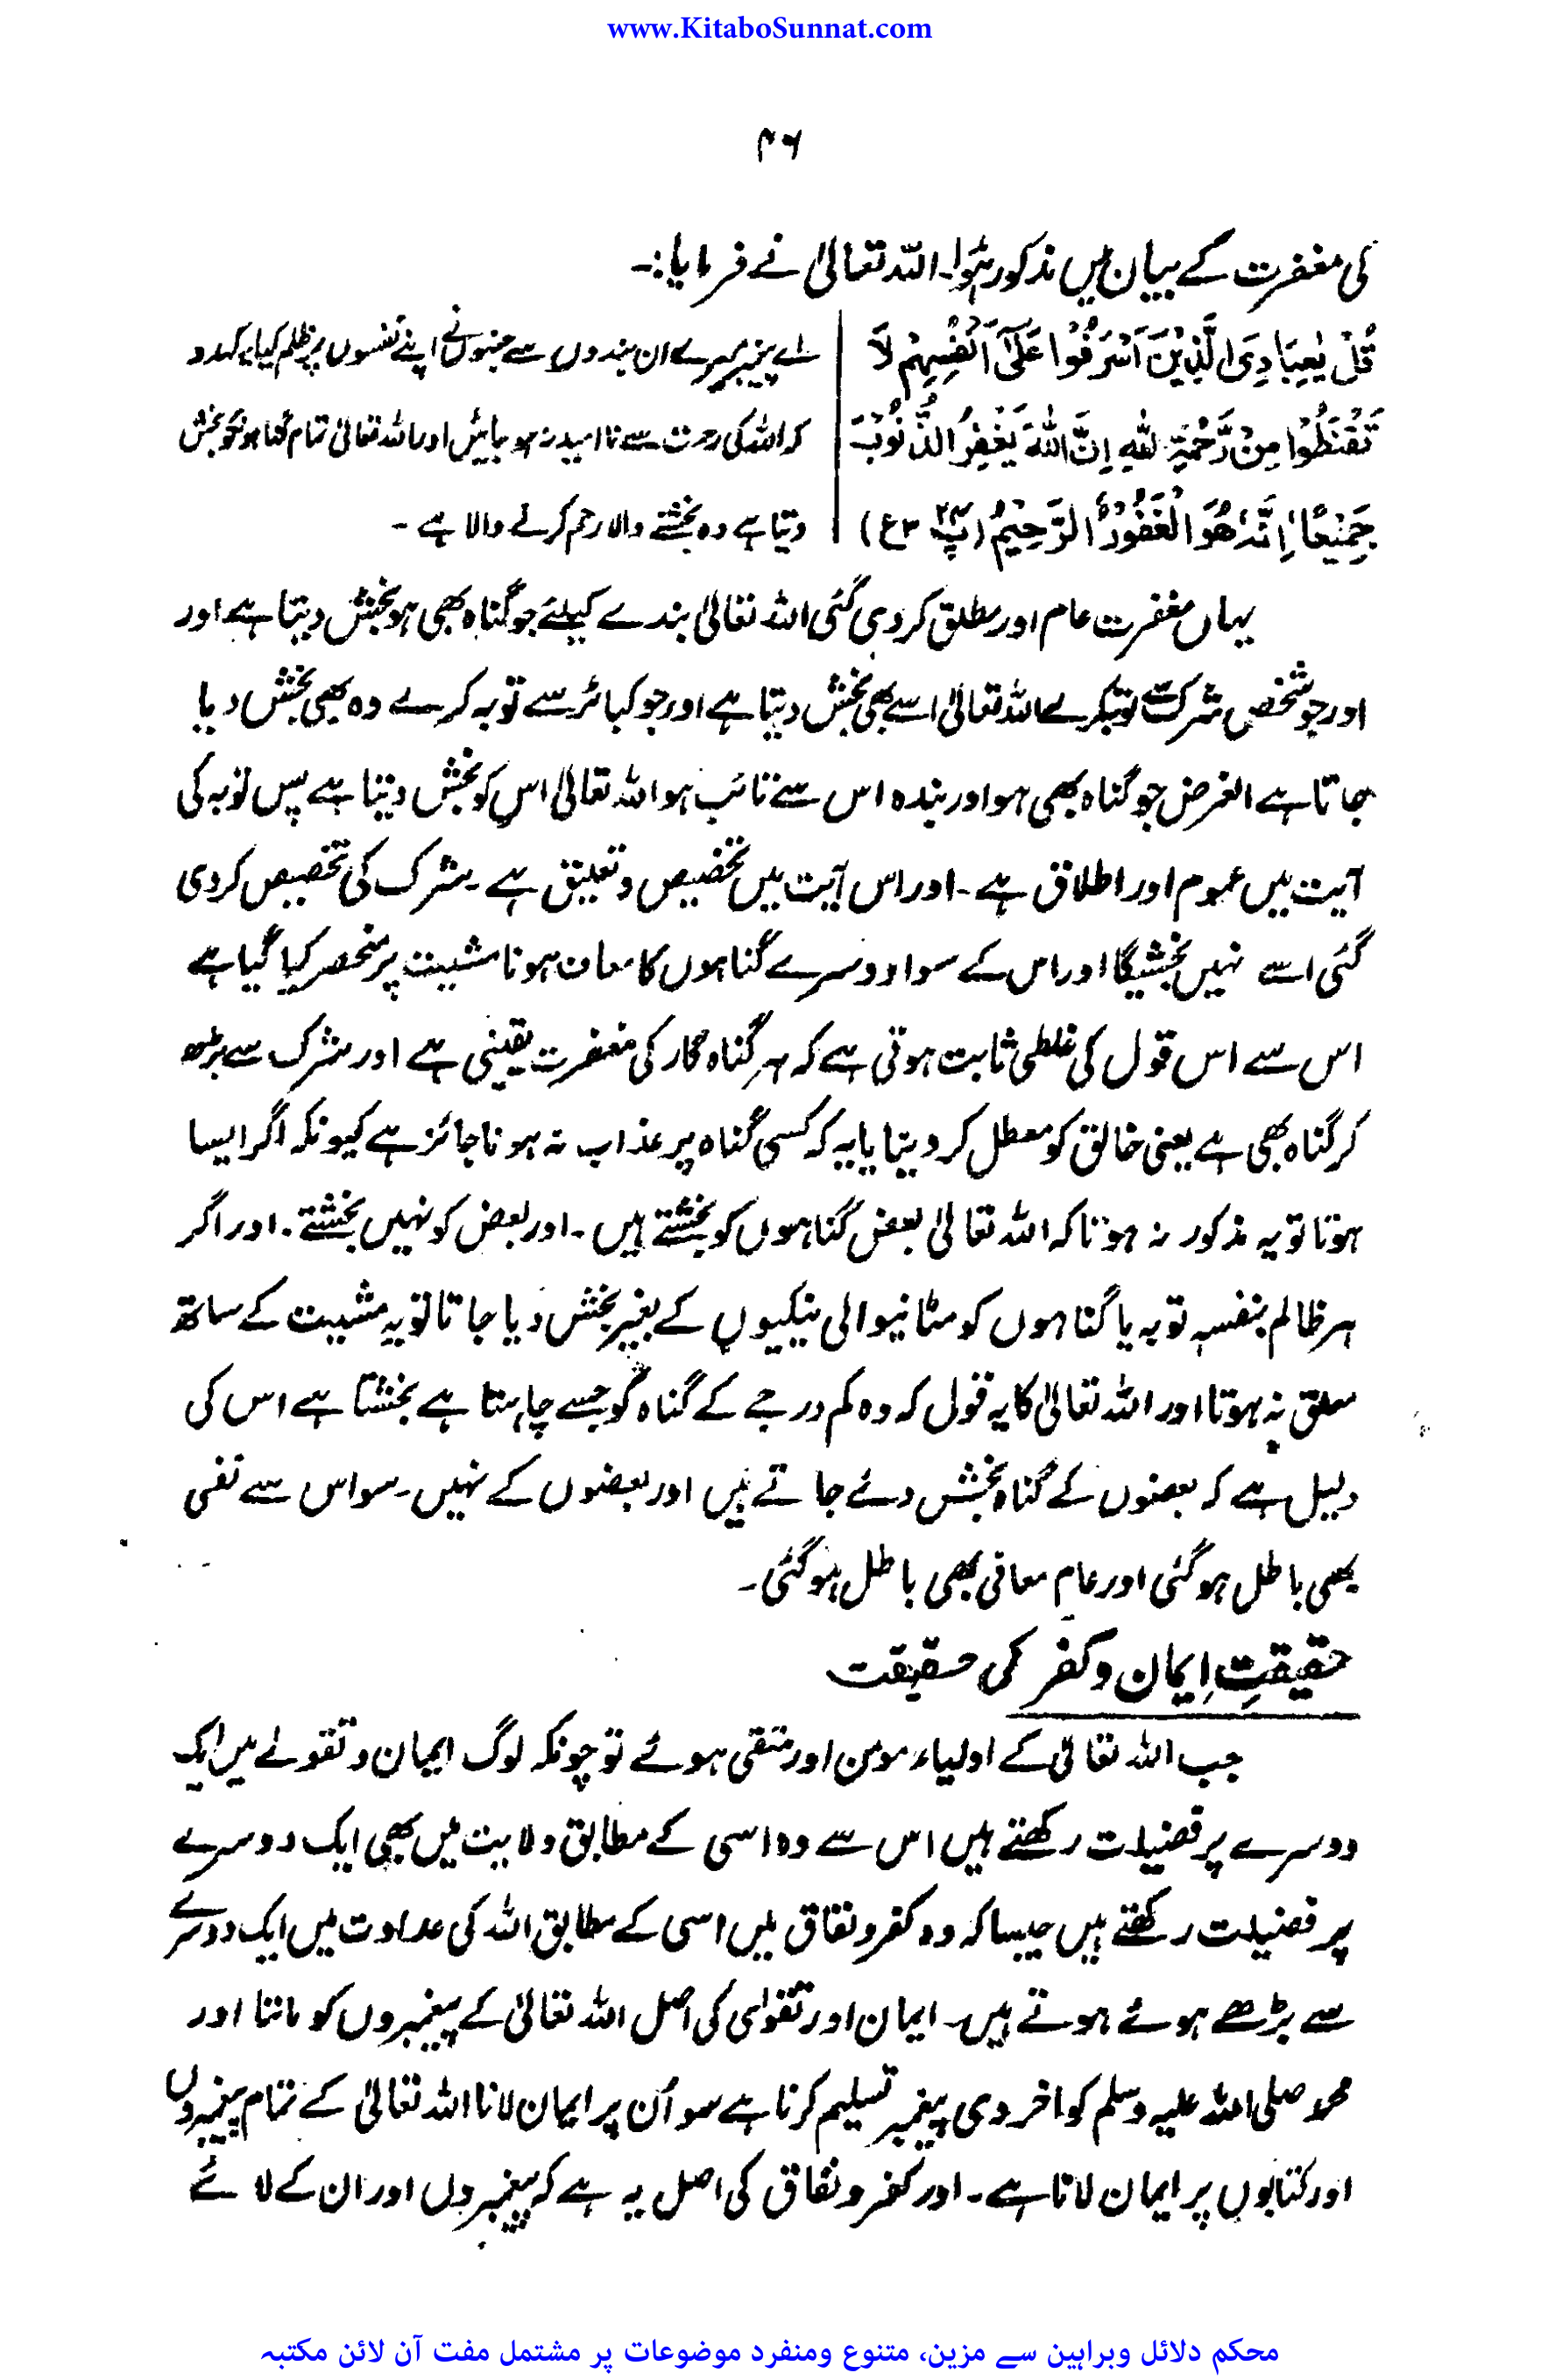 www.KitaboSunnat.com
۴۶
کی مغفرت کے بیان میں مذکور ہؤا۔ اللہ تعالیٰ نے فرمایا:۔
قُلْ یٰعِبَادِیَ الَّذِیْنَ اَسْرَفُوْا عَلٰٓی اَنْفُسِهِمْ لَا
تَقْنَطُوْا مِنْ رَّحْمَةِ اللّٰهِ اِنَّ اللّٰهَ یَغْفِرُ الذُّنُوْبَ
جَمِیْعًا اِنَّهٗ هُوَ الْغَفُوْرُ الرَّحِیْمُ (پ۲۴ ۳ع)
اے پیغمبر میرے ان بندوں سے جنہوں نے اپنے نفسوں پر ظلم کیا، کہدو
کہ اللہ کی رحمت سے ناامید نہ ہو جائیں اور اللہ تعالیٰ تمام گناہونکو بخش
دیتا ہے وہ بخشنے والا رحم کرنے والا ہے ۔
یہاں مغفرت عام اور مطلق کر دی گئی اللہ تعالیٰ بندے کیلئے جو گناہ بھی ہو بخش دیتا ہے اور
اور جو شخص شرک سے توبہ کرے اللہ تعالیٰ اسے بھی بخش دیتا ہے اور جو کبائر سے توبہ کرے وہ بھی بخش دیا
جاتا ہے الغرض جو گناہ بھی ہو اور بندہ اس سے تائب ہو اللہ تعالیٰ اس کو بخش دیتا ہے پس توبہ کی
آیت میں عموم اور اطلاق ہے ۔ اور اس آیت میں تخصیص و تعلیق ہے ۔ شرک کی تخصیص کر دی
گئی اسے نہیں بخشیگا اور اس کے سوا دوسرے گناہوں کا معاف ہونا مشیت پر منحصر کیا گیا ہے
اس سے اس قول کی غلطی ثابت ہوتی ہے کہ ہر گناہ گار کی مغفرت یقینی ہے اور شرک سے بڑھ
کر گناہ بھی ہے یعنی خالق کو معطل کر دینا یا یہ کہ کسی گناہ پر عذاب نہ ہونا جائز ہے کیونکہ اگر ایسا
ہوتا تو یہ مذکور نہ ہوتا کہ اللہ تعالیٰ بعض گناہوں کو بخشتے ہیں ۔ اور بعض کو نہیں بخشتے ۔ اور اگر
ہر ظالم بنفسہٖ توبہ یا گناہوں کو مٹانیوالی نیکیوں کے بغیر بخش دیا جاتا تو یہ مشیت کے ساتھ
معلق نہ ہوتا اور اللہ تعالیٰ کا یہ قول کہ وہ کم درجے کے گناہ کو جسے چاہتا ہے بخشتا ہے اس کی
دلیل ہے کہ بعضوں کے گناہ بخش دئے جاتے ہیں اور بعضوں کے نہیں ۔ سو اس سے نفی
بھی باطل ہو گئی اور عام معافی بھی باطل ہو گئی ۔
حقیقتِ اِیمان و کفر کی حقیقت
جب اللہ تعالیٰ کے اولیاء مومن اور متقی ہوئے تو چونکہ لوگ ایمان و تقوے میں ایک
دوسرے پر فضیلت رکھتے ہیں اس سے وہ اسی کے مطابق ولایت میں بھی ایک دوسرے
پر فضیلت رکھتے ہیں جیسا کہ وہ کفر و نفاق میں اسی کے مطابق اللہ کی عداوت میں ایک دوسرے
سے بڑھے ہوئے ہوتے ہیں۔ ایمان اور تقوٰی کی اصل اللہ تعالیٰ کے پیغمبروں کو ماننا اور
محمد صلی اللہ علیہ وسلم کو اخر دی پیغمبر تسلیم کرنا ہے سو اُن پر ایمان لانا اللہ تعالیٰ کے تمام پیغمبروں
اور کتابوں پر ایمان لانا ہے ۔ اور کفر و نفاق کی اصل یہ ہے کہ پیغمبروں اور ان کے لائے
محکم دلائل وبراہین سے مزین، متنوع ومنفرد موضوعات پر مشتمل مفت آن لائن مکتبہ